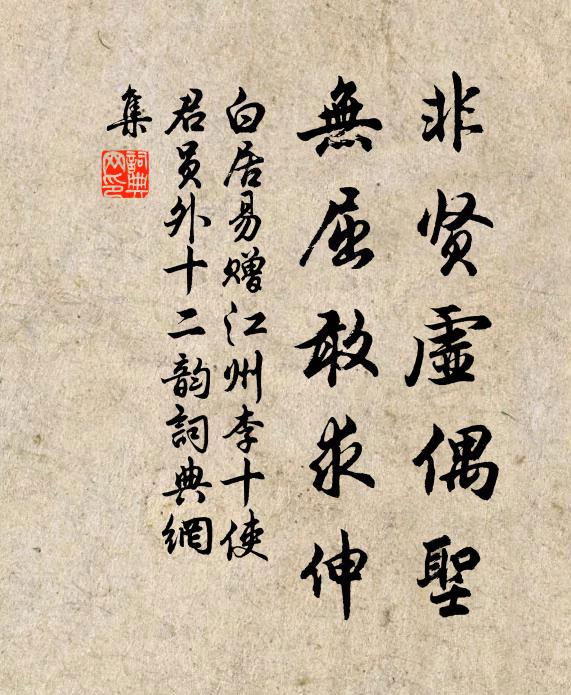 非贤虛偶聖
無屈敢求伸
白居易赠江州李十使
君員外十二韵詞典網
集
詞典
网印